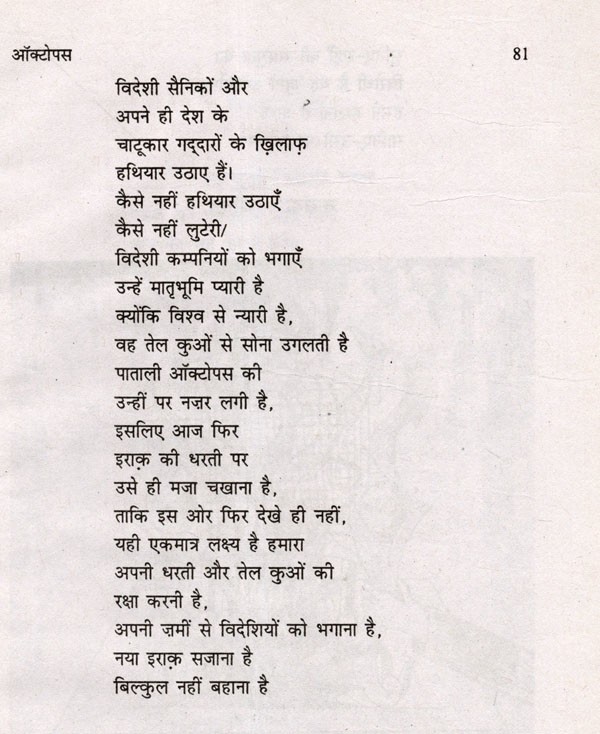 ऑक्टोपस 81
विदेशी सैनिकों और
अपने ही देश के
चाटूकार गद्दारों के ख़िलाफ़
हथियार उठाए हैं।
कैसे नहीं हथियार उठाएँ
कैसे नहीं लुटेरी/
विदेशी कम्पनियों को भगाएँ
उन्हें मातृभूमि प्यारी है
क्योंकि विश्व से न्यारी है,
वह तेल कुओं से सोना उगलती है
पाताली ऑक्टोपस की
उन्हीं पर नज़र लगी है,
इसलिए आज फिर
इराक़ की धरती पर
उसे ही मजा चखाना है,
ताकि इस ओर फिर देखे ही नहीं,
यही एकमात्र लक्ष्य है हमारा
अपनी धरती और तेल कुओं की
रक्षा करनी है,
अपनी ज़मीं से विदेशियों को भगाना है,
नया इराक़ सजाना है
बिल्कुल नहीं बहाना है